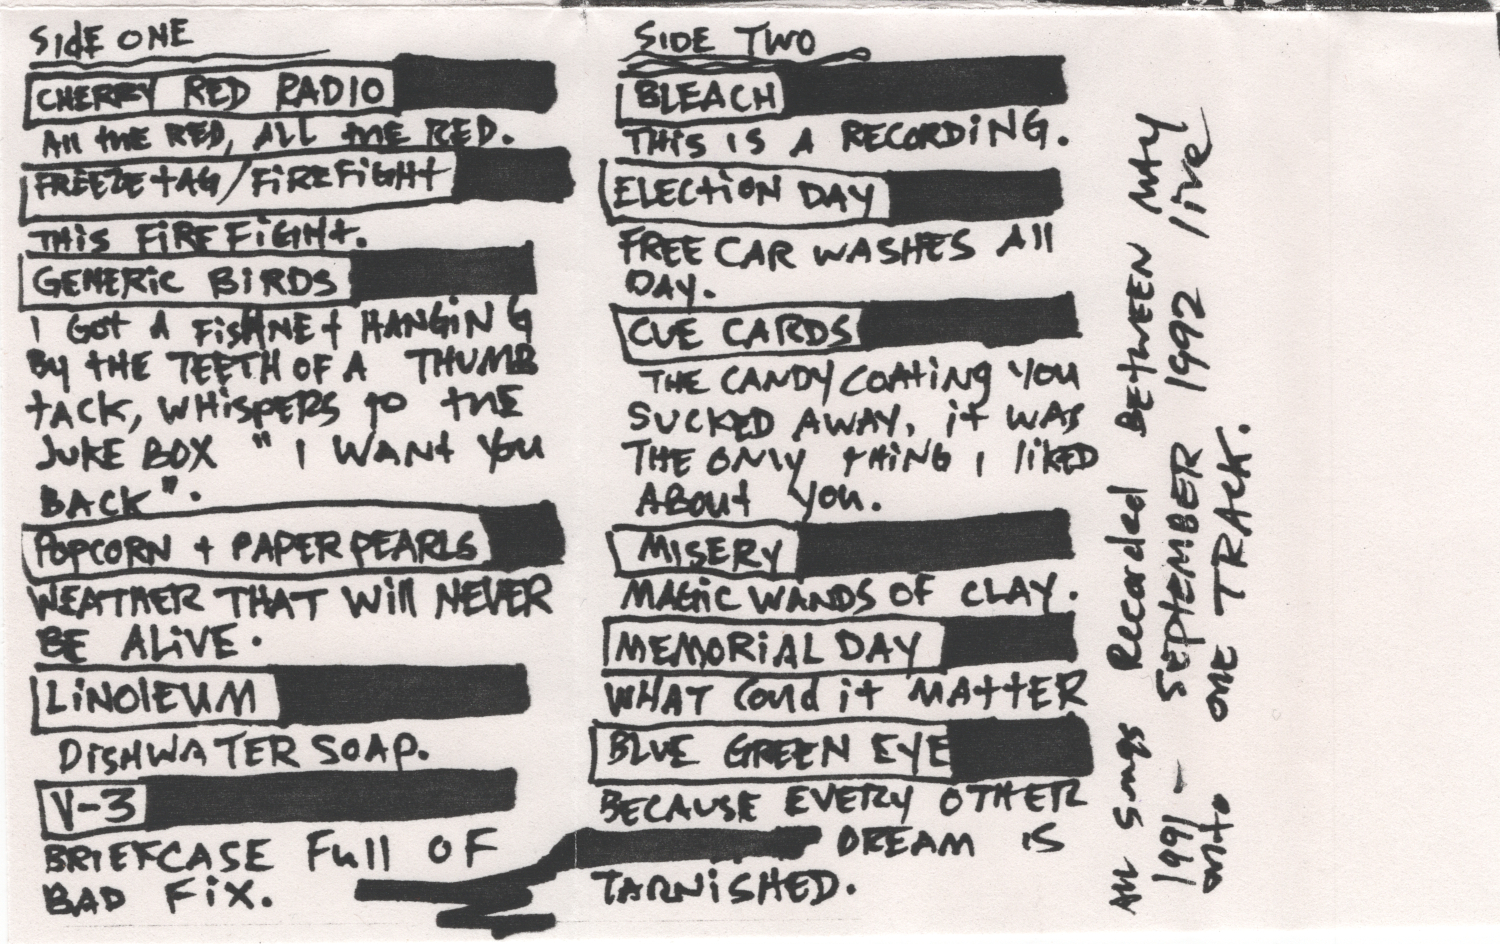 SidE ONE
CHERRY RED RADIO
All the RED, ALL the RED.
FREEZE tAG/FiREFiGHt
tHiS FiREFiGHt.
GENERiC BiRDS
I GOt A FiSHNEt HANGiNG
By tHE TEETH OF A THUMB
tACK, WHiSPERS to tHE
JUKE BOX "I WANt YOU
BACK".
POPCORN + PAPER PEARLS
WEATHER THAT Will NEVER
BE ALiVE.
LiNOlEUM
DiSHWATER SOAP.
V-3
BRIEFCASE Full OF
BAD FiX.
SIDE TWO
BLEACH
THiS IS A RECORDiNG.
ELECtiON DAY
FREE CAR WASHES All
DAY.
CUE CARDS
THE CANDY COAtiNg YOU
SUCKED AWAY, it WAS
THE ONly tHiNG I liKED
ABOUt You.
MiSERY
MAGiC WANDS OF CLAY.
MEMORiAL DAY
WHAT COuld it MAttER
BLUE GREEN EYE
BECAUSE EVERY OTHER
DREAM iS
TARNiSHED.
All Songs Recorded BETWEEN MAY
1991 - SEPTEMBER 1992 live
onto ONE TRACK.